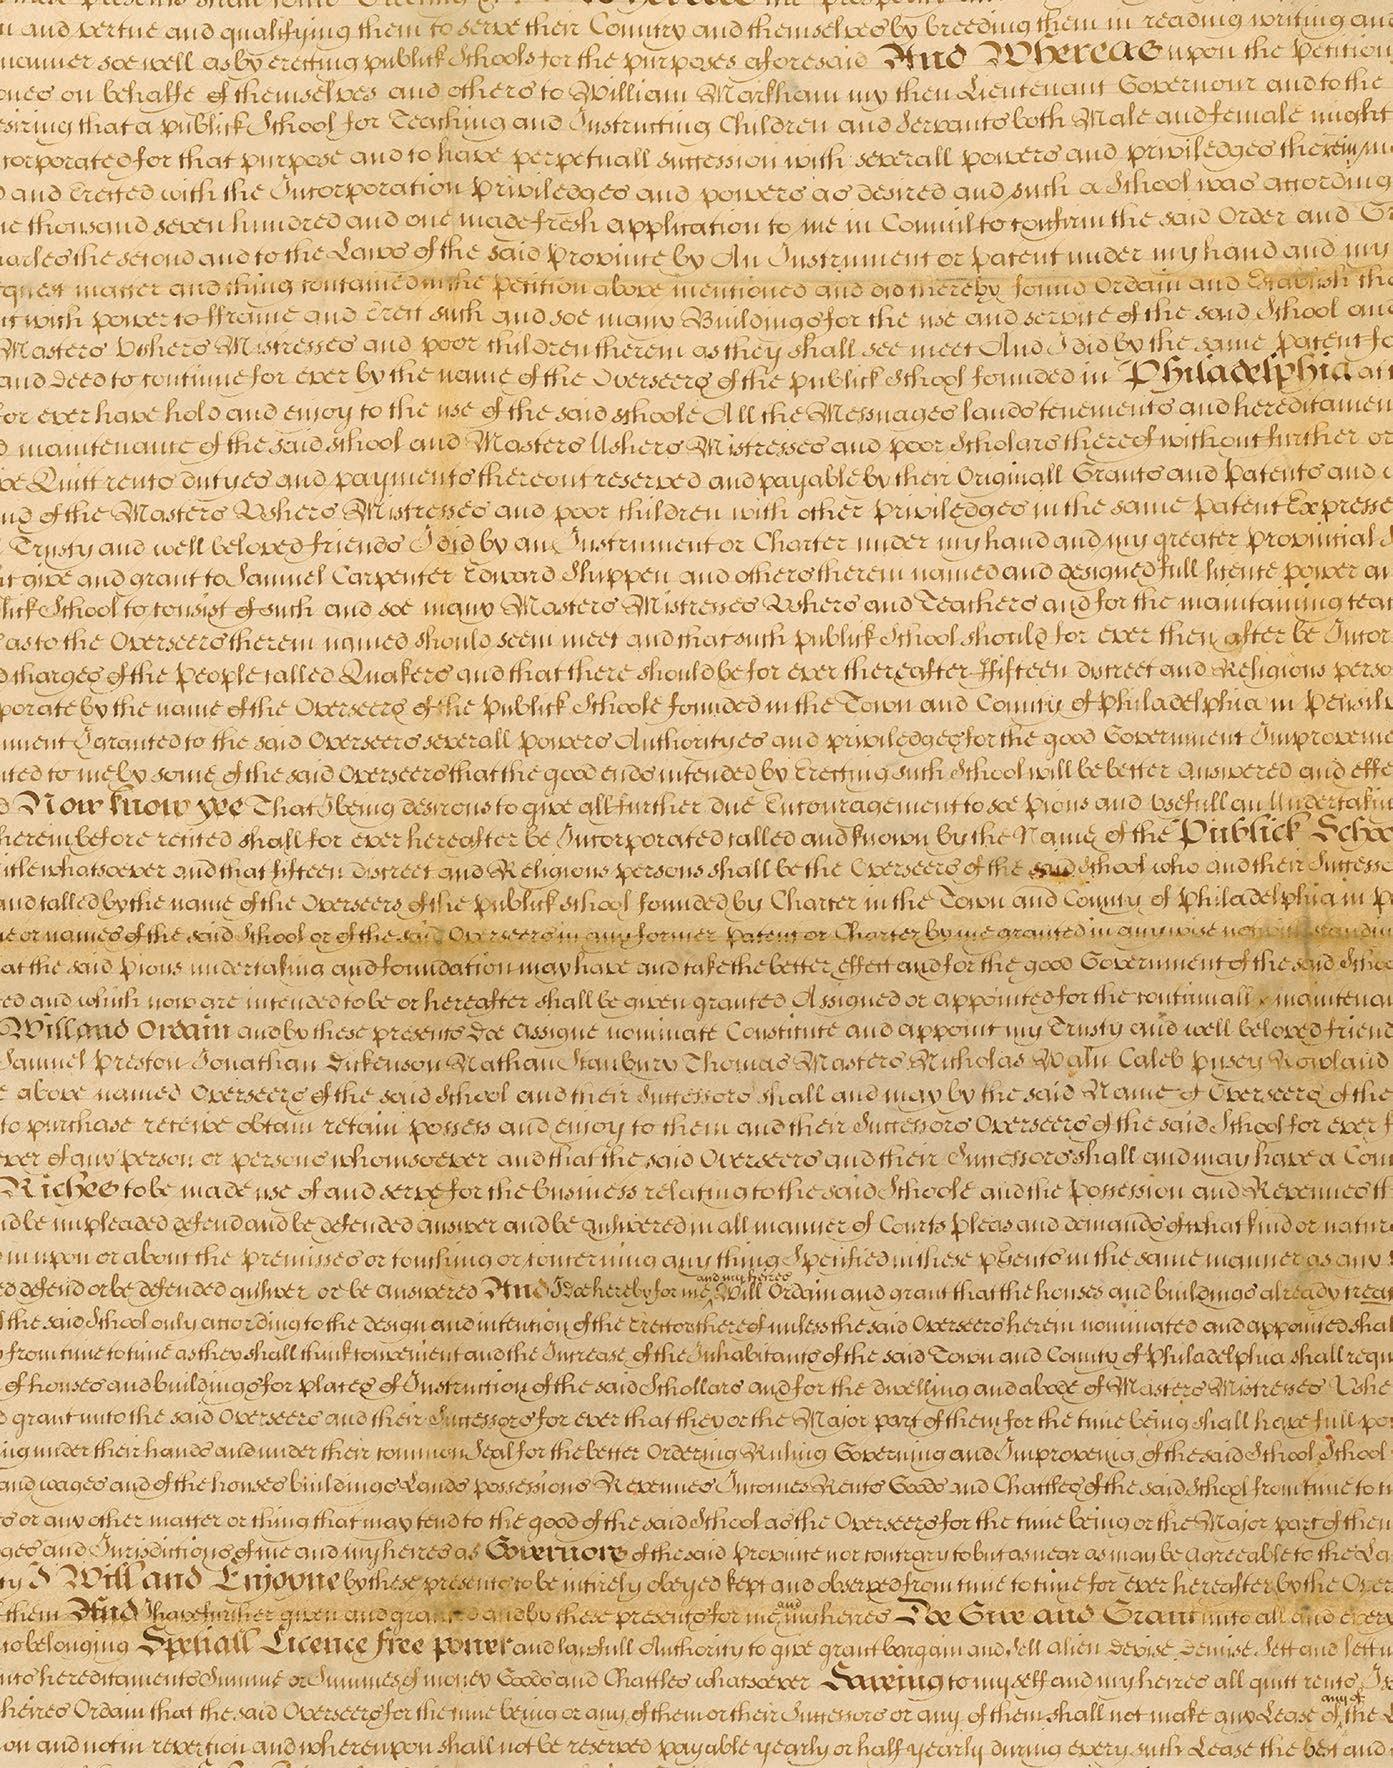 and vertue and qualifying them to serve their Country and themselves by breeding them in reading writing and
manner soe well as by erecting publick Schools for the purposes aforesaid And Whereas upon the Petition
on behalfe of themselves and others to William Markham my then Lieutenant Governour and to the
that a publick School for Teaching and Instructing Children and Servants both Male and female might
corporated for that purpose and to have perpetuall succession with severall powers and priviledges therein
and Erected with the Incorporation Priviledges and powers as desired and such a School was according
thousand seven hundred and one made fresh application to me in Councill to confirm the said Order and
the second and to the Laws of the said Province by An Instrument or patent under my hand and my
matter and thing contained in the petition above mentioned and did thereby found Ordain and Establish the
with power to fframe and Erect such and soe many Buildings for the use and service of the said School and
Masters Ushers Mistresses and poor children therein as they shall see meet And I did by the same patent
and deed to continue for ever by the name of the Overseers of the publick School founded in Philadelphia
for ever have hold and enjoy to the use of the said schoole All the Messuages lands tenements and
maintenance of the said school and Masters Ushers Mistresses and poor Scholars thereof without further or
Quitt rents dutyes and payments thereout reserved and payable by their Originall Grants and Patents and
of the Masters Ushers Mistresses and poor children with other priviledges in the same patent
Trusty and well beloved friends I did by an Instrument or Charter under my hand and my greater provincial
give and grant to Samuel Carpenter Edward Shippen and others therein named and designed full licence power
School to consist of such and soe many Masters Mistresses Ushers and Teachers and for the maintaining
as to the Overseers therein named should seem meet and that such publick School should for ever then after be
charges of the People called Quakers and that there should be for ever thereafter ffifteen discreet and Religious
by the name of the Overseers of the Publick Schoole founded in the Town and County of Philadelphia in
I granted to the said Overseers severall powers Authorityes and priviledges for the good Government
to me by some of the said Overseers that the good ends intended by Erecting such School will be better answered and
Now know ye That I being desirous to give all further due Encouragement to soe Pious and Usefull an
herein before recited shall for ever hereafter be Incorporated called and known by the Name of the Publick
whatsoever and that fifteen Discreet and Religious persons shall be the Overseers of the said School who and their
and called by the name of the Overseers of the publick school founded by Charter in the Town and County of Philadelphia in
or names of the said School or of the said Overseers in any former patent or Charter by me granted in any wise
at the said pious undertaking and foundation may have and take the better effect and for the good Government of the said
and which now are intended to be or hereafter shall be given granted Assigned or appointed for the continuall maintenan
Will and Ordain and by these presents Doe Assigne nominate Constitute and appoint my Trusty and well beloved friend
Samuel Preston Jonathan Dickenson Nathan Stanbury Thomas Masters Nicholas Waln Caleb Pusey Rowland
above named Overseers of the said School and their Successors shall and may by the said Name of Overseers of the
to purchase receive obtain retain possess and enjoy to them and their Successors Overseers of the said School for ever
of any person or persons whomsoever and that the said Overseers and their Successors shall and may have a
Riches to be made use of and serve for the business relating to the said Schoole and the Possession and Revenues
be impleaded defend and be defended answer and be answered in all manner of Courts Pleas and demands of what kind or
in upon or about the premisses or touching or concerning any thing Specified in these psents in the same manner as any
defend or be defended answer or be answered And I doe hereby for me and my heires Will Ordain and grant that the houses and buildings already
the said School only according to the design and intention of the Erectors thereof unless the said Overseers herein nominated and appointed
from time to time as they shall think convenient and the Increase of the Inhabitants of the said Town and County of Philadelphia shall
of houses and buildings for places of Instruction of the said Schollars and for the dwelling and abode of Masters Mistresses
grant unto the said Overseers and their Successors for ever that they or the Major part of them for the time being shall have full
under their hands and under their common Seal for the better Ordering Ruling Governing and Improveing of the said School
and wages and of the houses buildings Lands possessions Revenues Incomes Rents Goods and Chattles of the said School from time to
or any other matter or thing that may tend to the good of the said School as the Overseers for the time being or the Major part of them
and Jurisdictions of me and my heires as Governors of the said Province nor contrary to but as near as may be agreeable to the
I Will and Enjoyne by these presents to be intirely obeyed kept and observed from time to time for ever hereafter by the
them And I have further given and granted and by these presents for me and my heires Doe Give and Grant unto all and
belonging Speciall Licence free power and lawfull Authority to give grant bargain and Sell alien Devise Demise Sett and lett
hereditaments Summe or Summes of money Goods and Chattles whatsoever Saveing to my self and my heires all quitt rents
heires Ordain that the said Overseers for the time being or any of them or their Successors or any of them shall not make any Lease of any of the
and not in revertion and whereupon shall not be reserved payable yearly or half yearly during every such Lease the best and